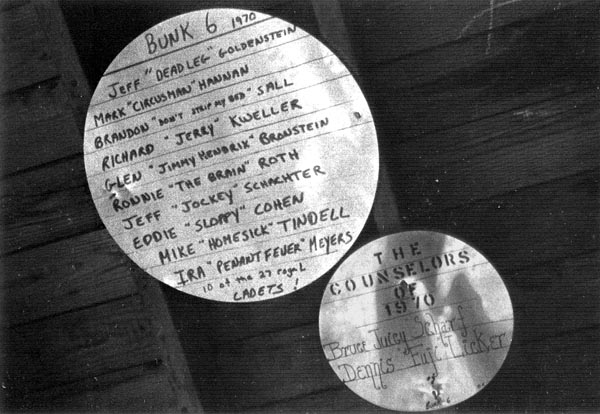 BUNK 6 1970
JEFF "DEADLEG" GOLDENSTEIN
MARK "CIRCUSMAN" HANNAN
BRANDON "DON'T STRIP MY BED" SALL
RICHARD "JERRY" KWELLER
GLEN "JIMMY HENDRIX" BRONSTEIN
RONNIE "THE BRAIN" ROTH
JEFF "JOCKEY" SCHACHTER
EDDIE "SLOPPY" COHEN
MIKE "HOMESICK" TINDELL
IRA "PENANT FEVER" MEYERS
10 of the 27 royal
CADETS!
THE
COUNSELORS
OF
1970
Bruce Juicy Scharf
Dennis Licker
of